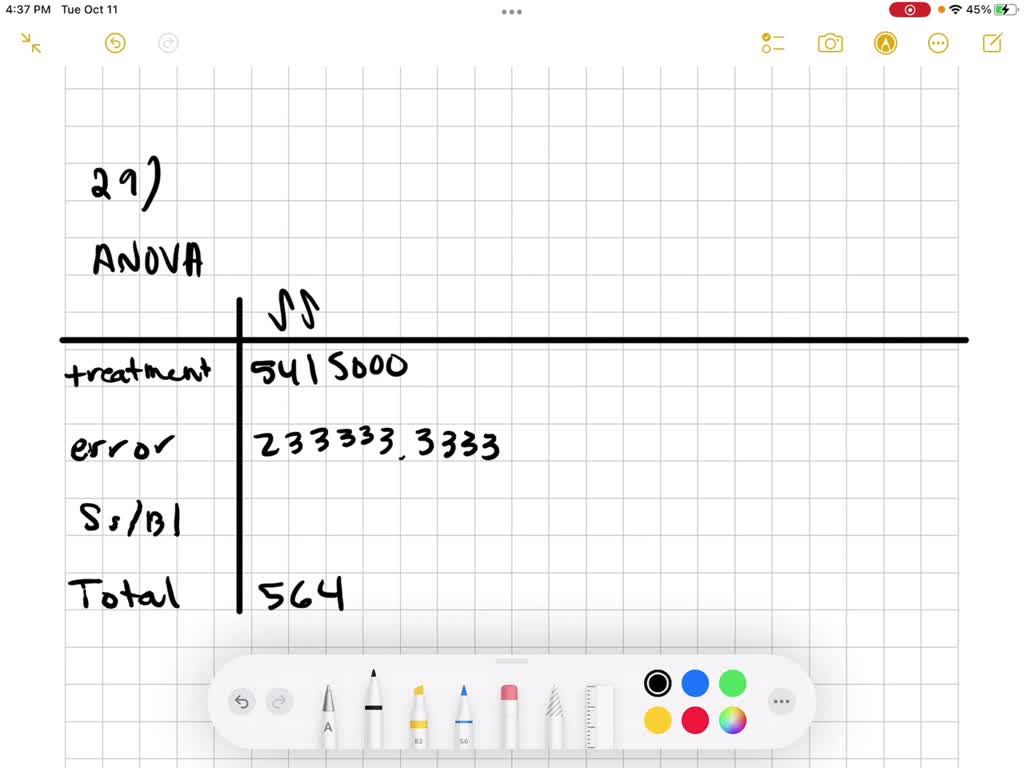 4:37 PM Tue Oct 11 45%
29)
ANOVA
SS
treatment 5415000
error 233333.3333
Ss/Bl
Total 564
A 82 50